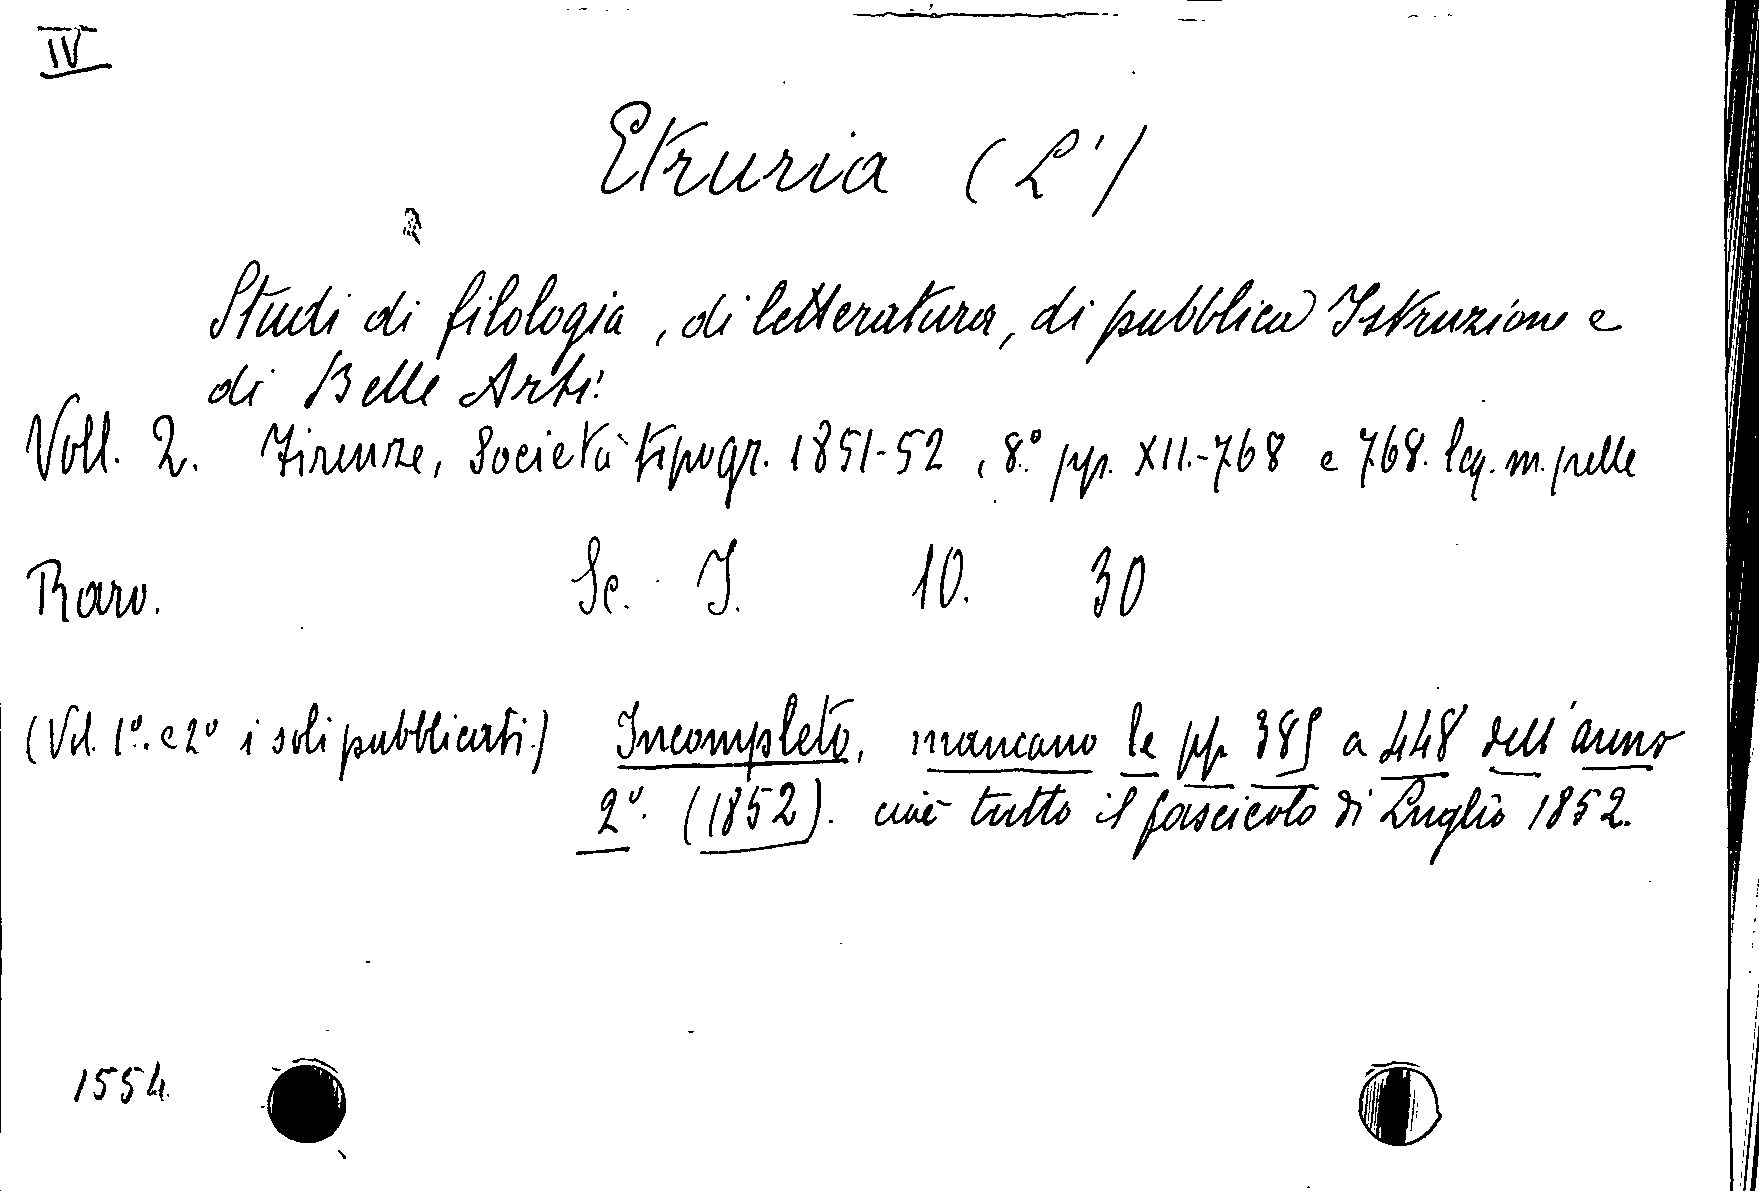 IV
Etruria (L')
Studi di filologia, di letteratura, di pubblica Istruzione e
di Belle Arti.
Voll. 2. Firenze, Società tipogr. 1851-52, 8.° pp. XII.-768 e 768. leg. m. pelle
Raro. Sc. I. 10. 30
(Vol. 1°. e 2° i soli pubblicati.) Incompleto, mancano le pp. 385 a 448 dell'anno
2°. (1852). cioè tutto il fascicolo di Luglio 1852.
1554.